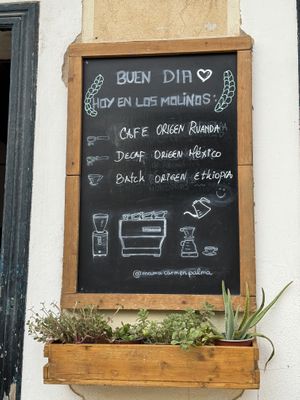 BUEN DIA
HOY EN LOS MOLINOS:
CAFE ORIGEN RUANDA
DECAF ORIGEN MÉXICO
BATCH ORIGEN ETHIOPIA
@mama.carmen.palma